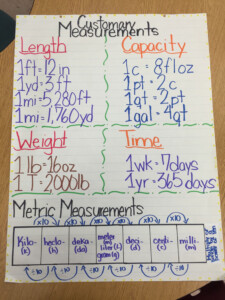 Customary
Measurements
Length
1ft = 12in
1yd = 3ft
1mi = 5,280ft
1mi = 1,760yd
Capacity
1c = 8floz
1pt = 2c
1qt = 2pt
1gal = 4qt
Weight
1lb = 16oz
1T = 2000lb
Time
1wk = 7days
1yr = 365days
Metric Measurements
x10 x10 x10 x10 x10 x10
Kilo- (k)
hecto- (h)
deka- (da)
meter (m) liter (L) gram (g)
deci- (d)
centi- (c)
milli- (m)
÷10 ÷10 ÷10 ÷10 ÷10 ÷10